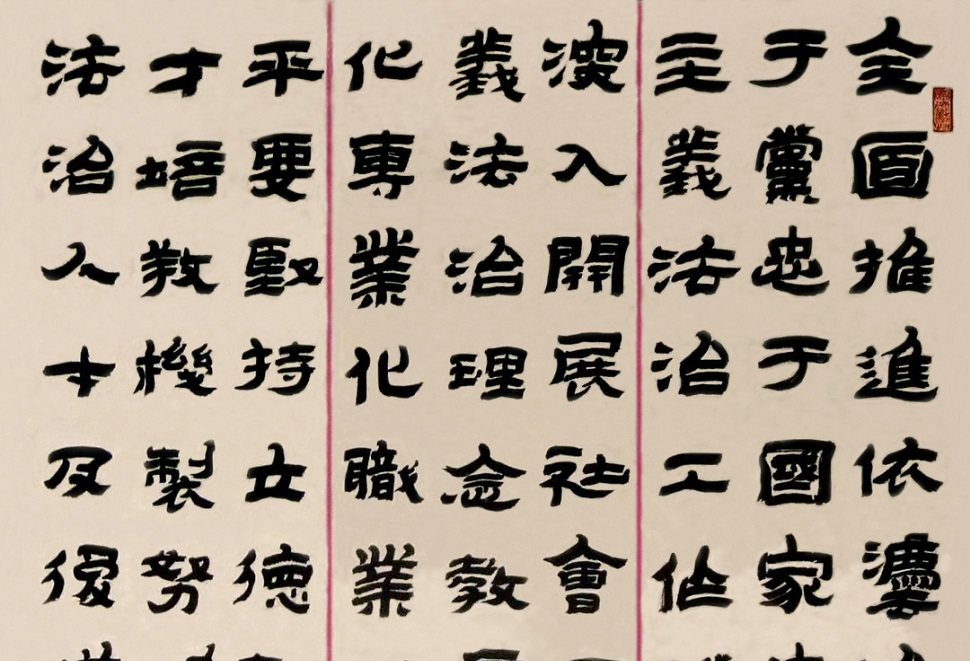 全面推進依灋
于黨忠于國家
主義法治工作
深入開展社會
義法治理念教
化專業化職業
平要堅持立德
才培教機製努
法治人才及後